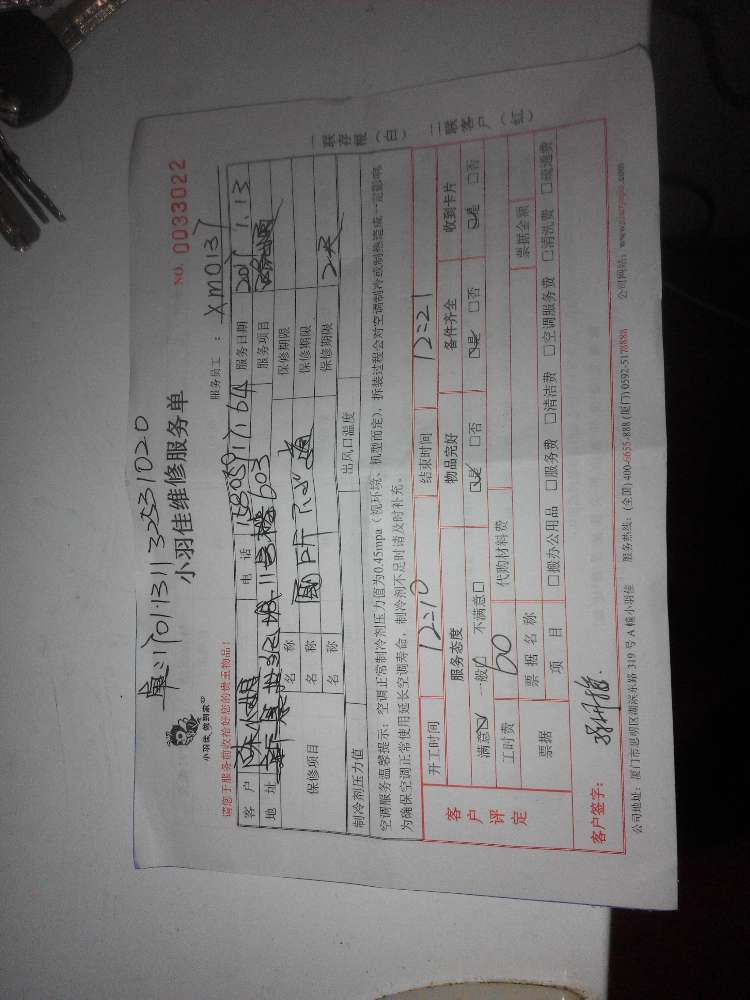 单:11701·1311 32531020
小羽佳维修服务单
NO. 0033022
小羽佳,做到家
服务员工: XM0137
请您于服务前收拾好您的贵重物品!
客户 电话 服务日期 1.13
地址 11号楼603 服务项目
保修项目 名称 保修期限
名称 保修期限
名称 保修期限
制冷剂压力值 出风口温度
空调服务温馨提示:空调正常制冷剂压力值为0.45mpa(视环境、机型而定),拆装过程会对空调制冷或制热造成一定影响,
为确保空调正常使用延长空调寿命,制冷剂不足时请及时补充。
客户评定
开工时间 12:10 结束时间 12:21
服务态度 物品完好 备件齐全 收到卡片
满意☑ 一般□ 不满意□ ☑是 □否 ☑是 □否 ☑是 □否
工时费 60 代购材料费
票据 票据名称 票据金额
项目 □搬办公用品 □服务费 □清洁费 □空调服务费 □清洗费 □疏通费
客户签字:
公司地址:厦门市思明区湖滨东路319号A幢小羽佳 服务热线:(全国)400-6655-888 (厦门)0592-5178888 公司网站:www.xiaoyujia.com
一联存根(白) 二联客户(红)